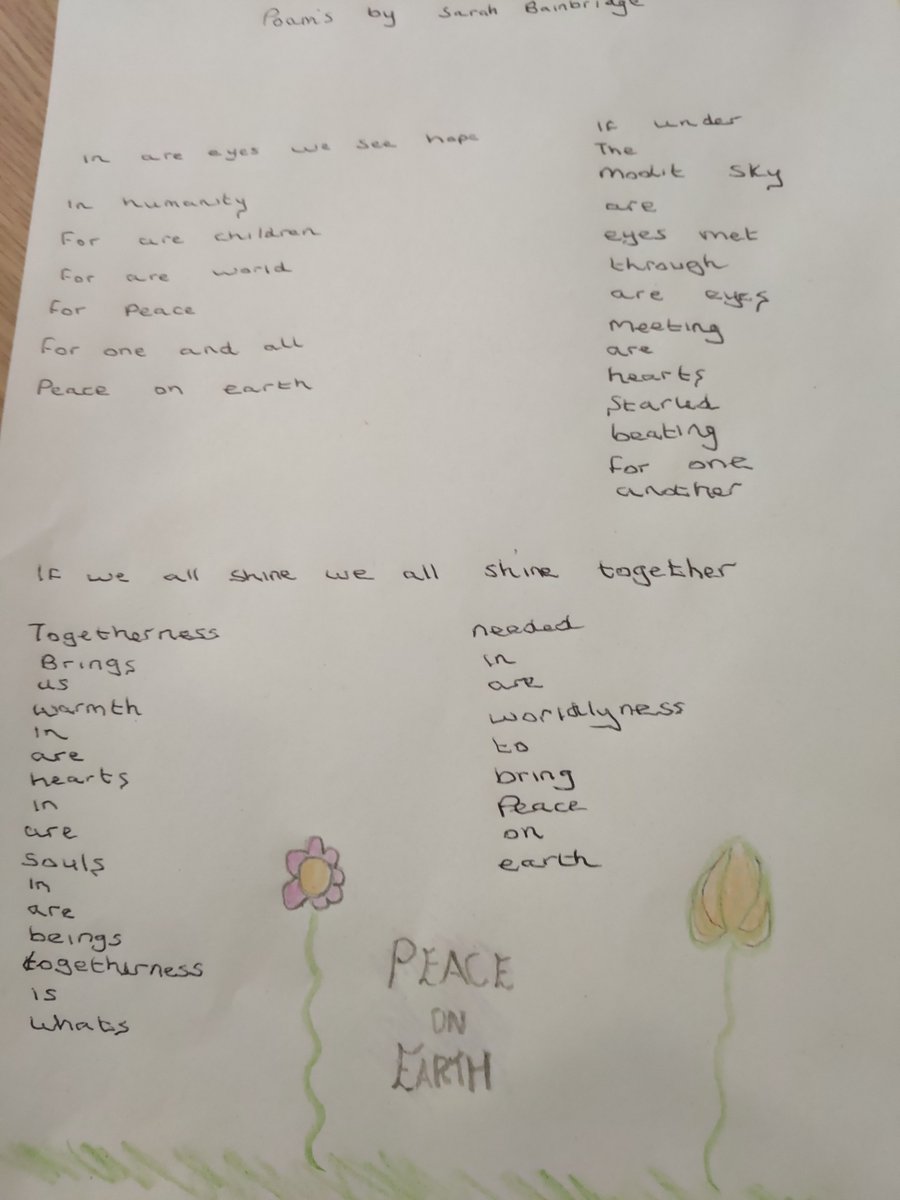 Poam's by Sarah Bainbridge
In are eyes we see hope
In humanity
For are children
For are world
For Peace
For one and all
Peace on earth
If under
The
moolit sky
are
eyes met
through
are eyes
Meeting
are
hearts
Started
beating
for one
another
If we all shine we all shine together
Togetherness
Brings
us
warmth
in
are
hearts
in
are
souls
in
are
beings
togetherness
is
whats
needed
in
are
worldlyness
to
bring
Peace
on
earth
PEACE
ON
EARTH